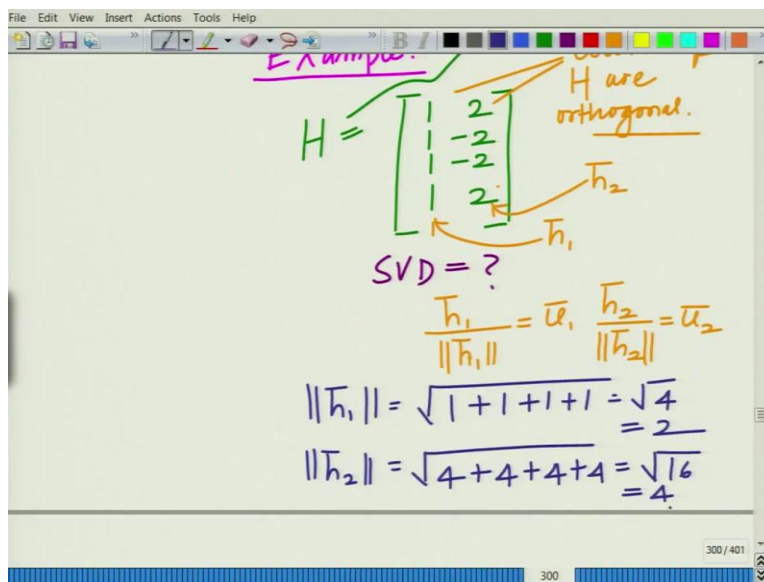 File Edit View Insert Actions Tools Help
B I
Example:
H are
orthogonal.
H = [ 1 2
1 -2
1 -2
1 2 ]
h̄₂
h̄₁
SVD = ?
h̄₁ / ||h̄₁|| = ū₁ h̄₂ / ||h̄₂|| = ū₂
||h̄₁|| = √(1+1+1+1) = √4
= 2
||h̄₂|| = √(4+4+4+4) = √16
= 4
300 / 401
300